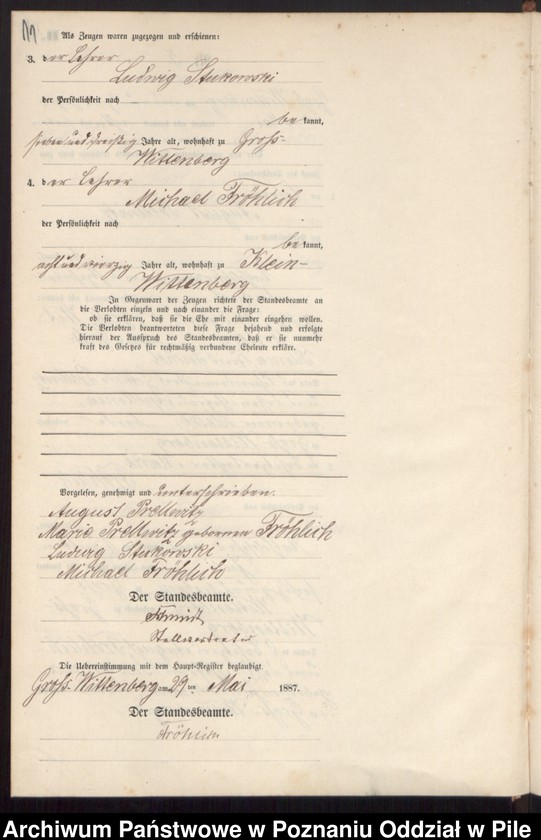 Als Zeugen waren zugezogen und erschienen:
3. der Lehrer
Ludwig Stukowski
der Persönlichkeit nach
be kannt,
sieben und dreißig Jahre alt, wohnhaft zu Groß-
Wittenberg
4. der Lehrer
Michael Fröhlich
der Persönlichkeit nach
be kannt,
acht und vierzig Jahre alt, wohnhaft zu Klein-
Wittenberg
In Gegenwart der Zeugen richtete der Standesbeamte an
die Verlobten einzeln und nach einander die Frage:
ob sie erklären, daß sie die Ehe mit einander eingehen wollen.
Die Verlobten beantworteten diese Frage bejahend und erfolgte
hierauf der Ausspruch des Standesbeamten, daß er sie nunmehr
kraft des Gesetzes für rechtmäßig verbundene Eheleute erkläre.
Vorgelesen, genehmigt und unterschrieben.
August Prellwitz
Marie Prellwitz geborenen Fröhlich
Ludwig Stukowski
Michael Fröhlich
Der Standesbeamte.
Schmidt
Stellvertreter
Die Uebereinstimmung mit dem Haupt-Register beglaubigt.
Groß Wittenberg am 29 ten Mai 1887.
Der Standesbeamte.
Fröhlich
Archiwum Państwowe w Poznaniu Oddział w Pile